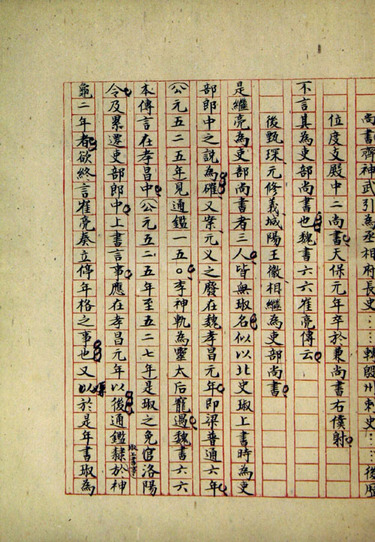 尚書齊神武引為丞相府長史……轉殷州刺史……後歷
位度支殿中二尚書天保元年卒於兼尚書右僕射
不言其為吏部尚書也魏書六六崔亮傳云
後甄琛元修義城陽王徽相繼為吏部尚書
是繼亮為吏部尚書者三人皆無琡名似以北史琡上書時為吏
部郎中之說為確又案元乂之廢在魏孝昌元年即梁普通六年
公元五二五年見通鑑一五〇李神軌為靈太后寵遇魏書六六
本傳言在孝昌中公元五二五年至五二七年是琡之免官洛陽
令及累遷吏部郎中上書言事應在孝昌元年以後通鑑隸琡上書事於神
龜二年者欲終言崔亮奏立停年格之事也又以於是年書琡為